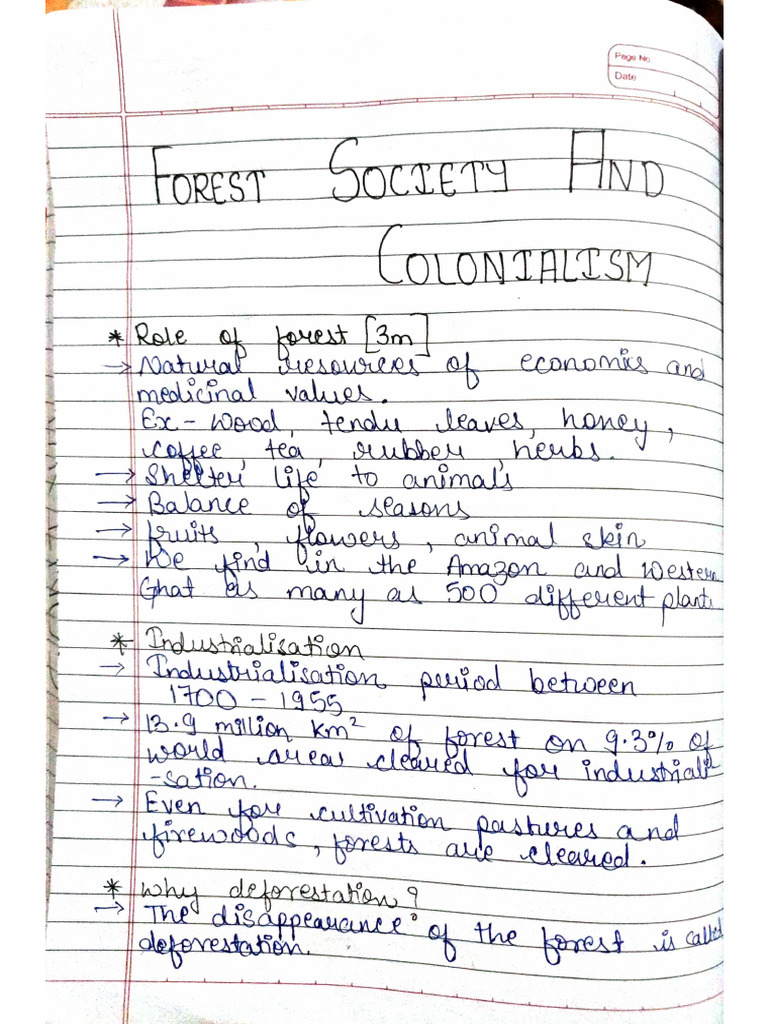 Page No
Date
FOREST SOCIETY AND
COLONIALISM
* Role of forest [3m]
→ Natural resources of economics and
medicinal values.
Ex - Wood, tendu leaves, honey,
coffee, tea, rubber, herbs.
→ Shelter life to animals
→ Balance of seasons
→ fruits, flowers, animal skin
→ We find in the Amazon and Western
Ghat as many as 500 different plants
* Industrialisation
→ Industrialisation period between
1700 - 1955
→ 13.9 million km² of forest on 9.3% of
world areas cleared for industriali
-sation.
→ Even for cultivation pastures and
firewoods, forests are cleared.
* Why deforestation?
→ The disappearance of the forest is called
deforestation.